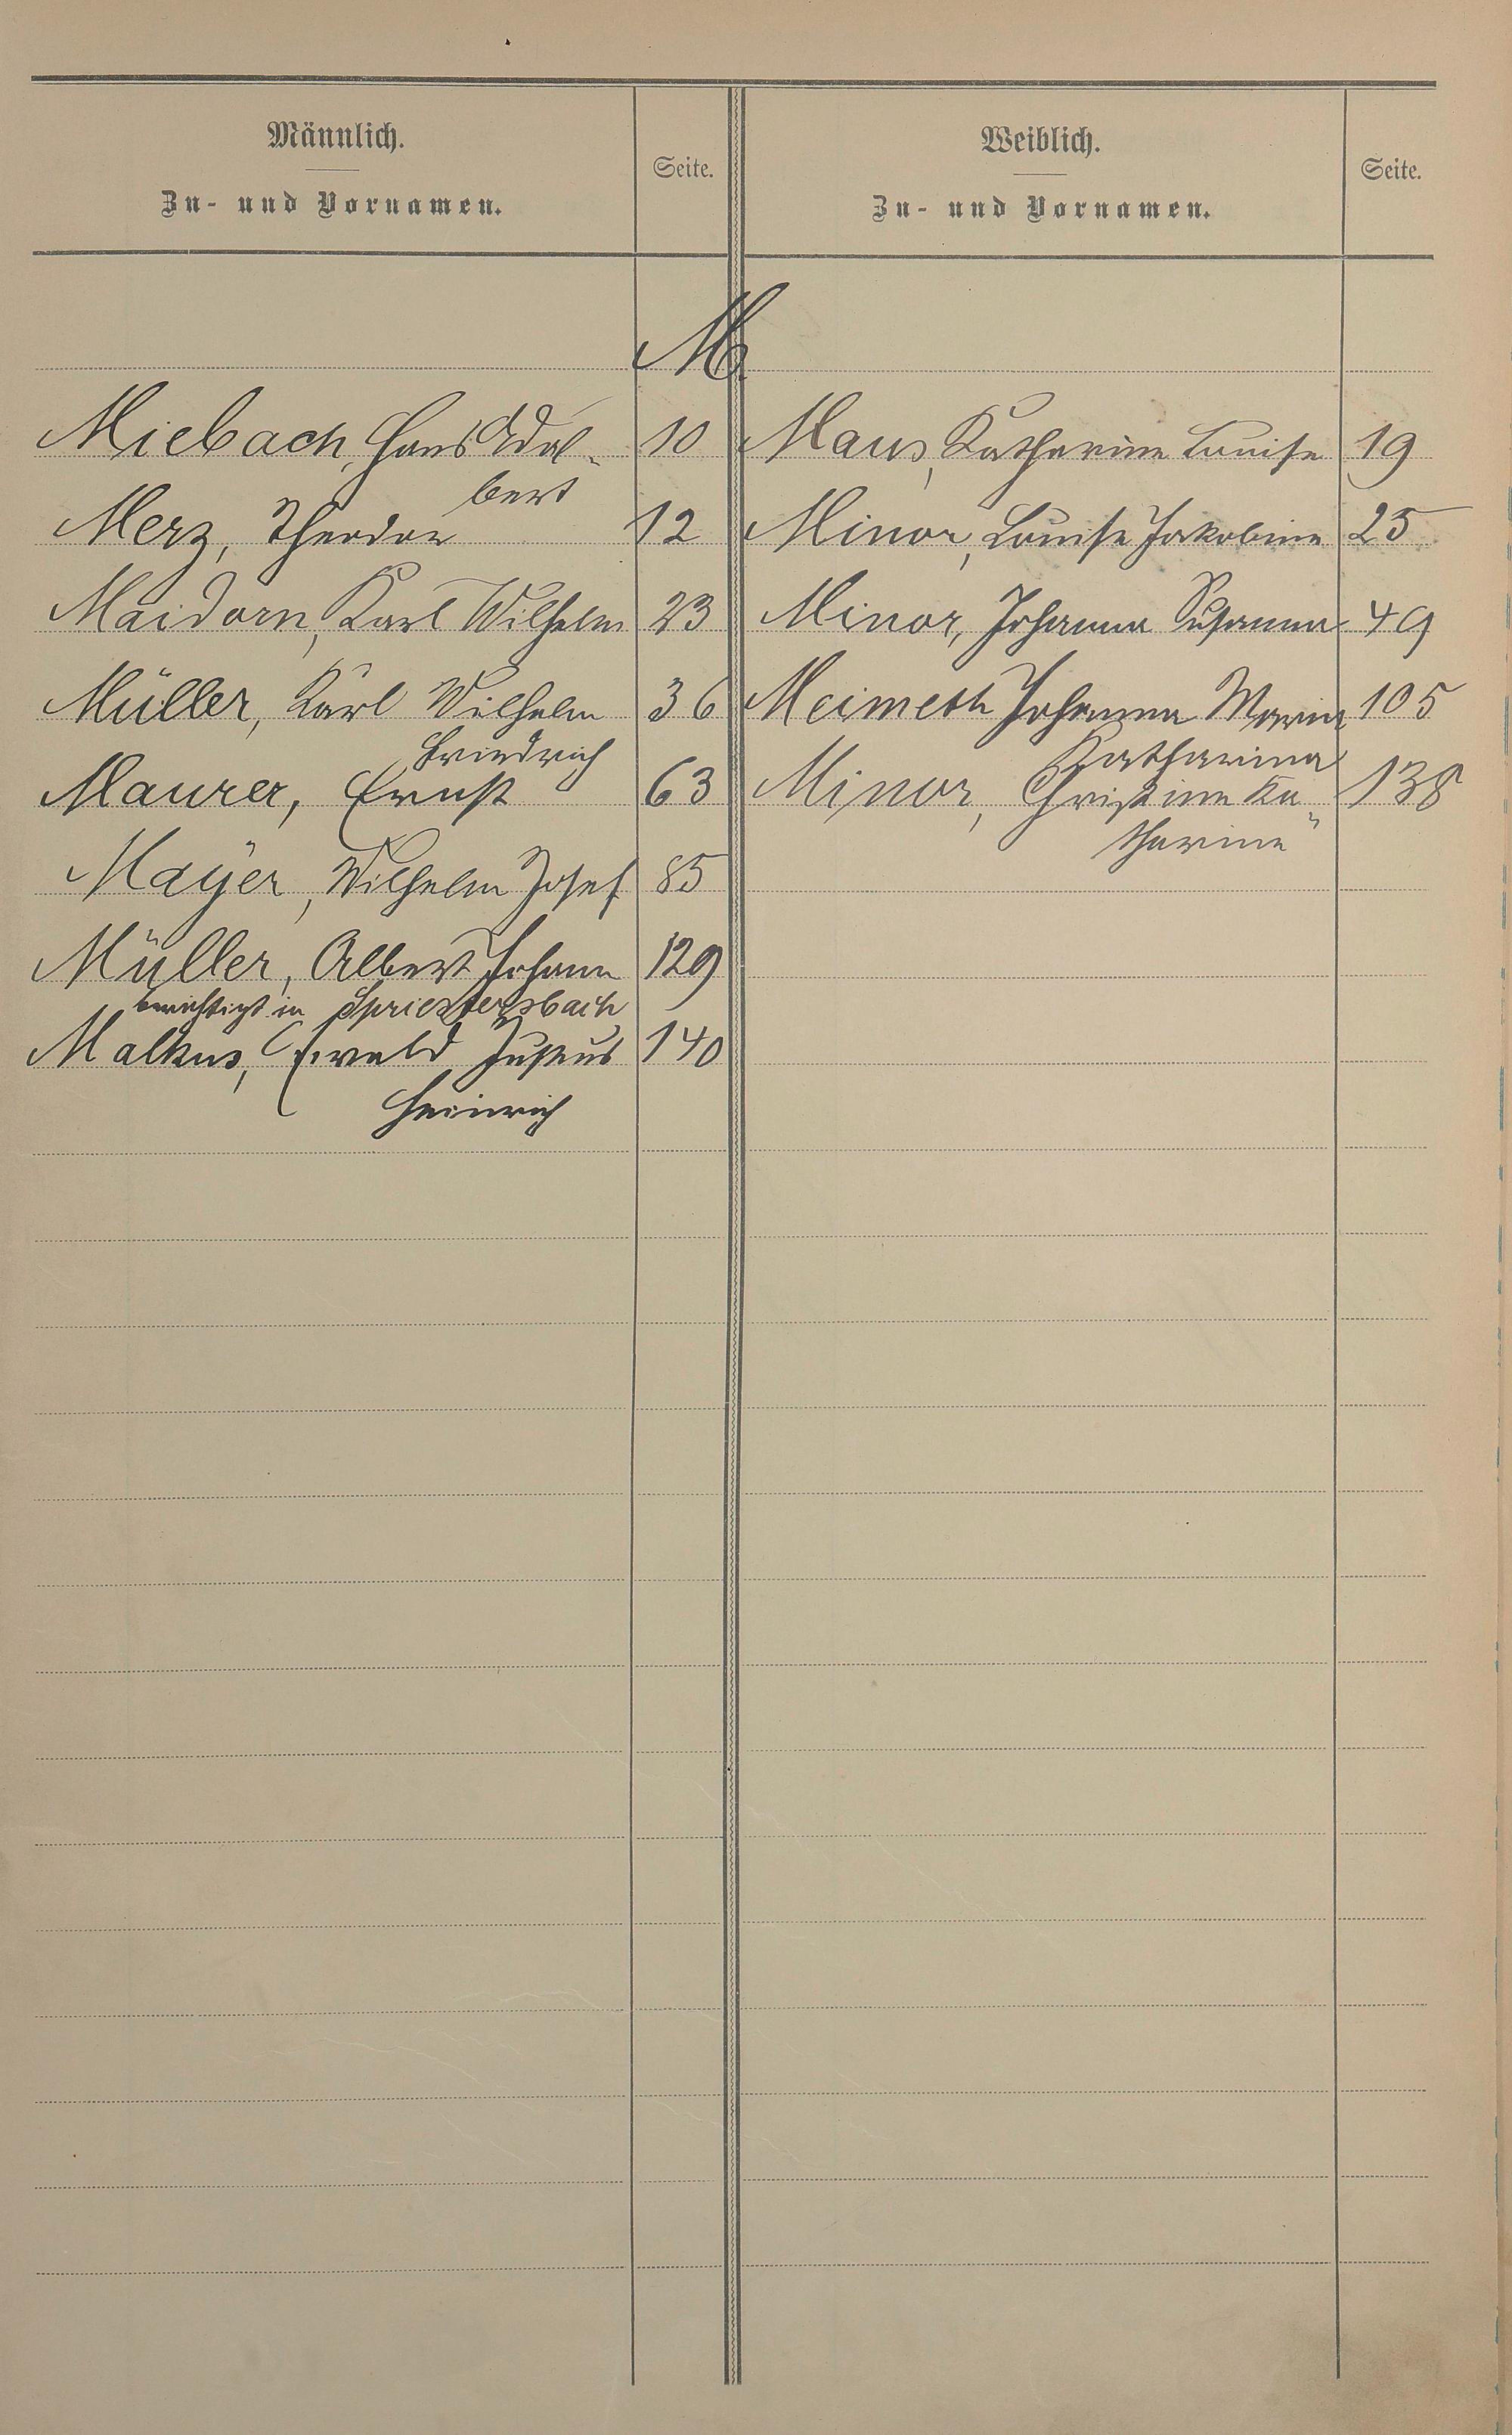 Männlich.
Zu- und Vornamen.
Seite.
Weiblich.
Zu- und Vornamen.
Seite.
M
Miebach, Hans Adal- 10
bert
Merz, Theodor 12
Maidorn, Karl Wilhelm 23
Müller, Karl Wilhelm 36
Friedrich
Maurer, Ernst 63
Mayer, Wilhelm Josef 85
Müller, Albert Johann 129
berichtigt in Spriestersbach
Malkus, Ewald Justus 140
Heinrich
Maus, Katharine Louise 19
Minor, Louise Jakobine 25
Minor, Johanna Susanna 49
Meimeth Johanna Maria 105
Katharina
Minor, Christine Ka- 138
tharine